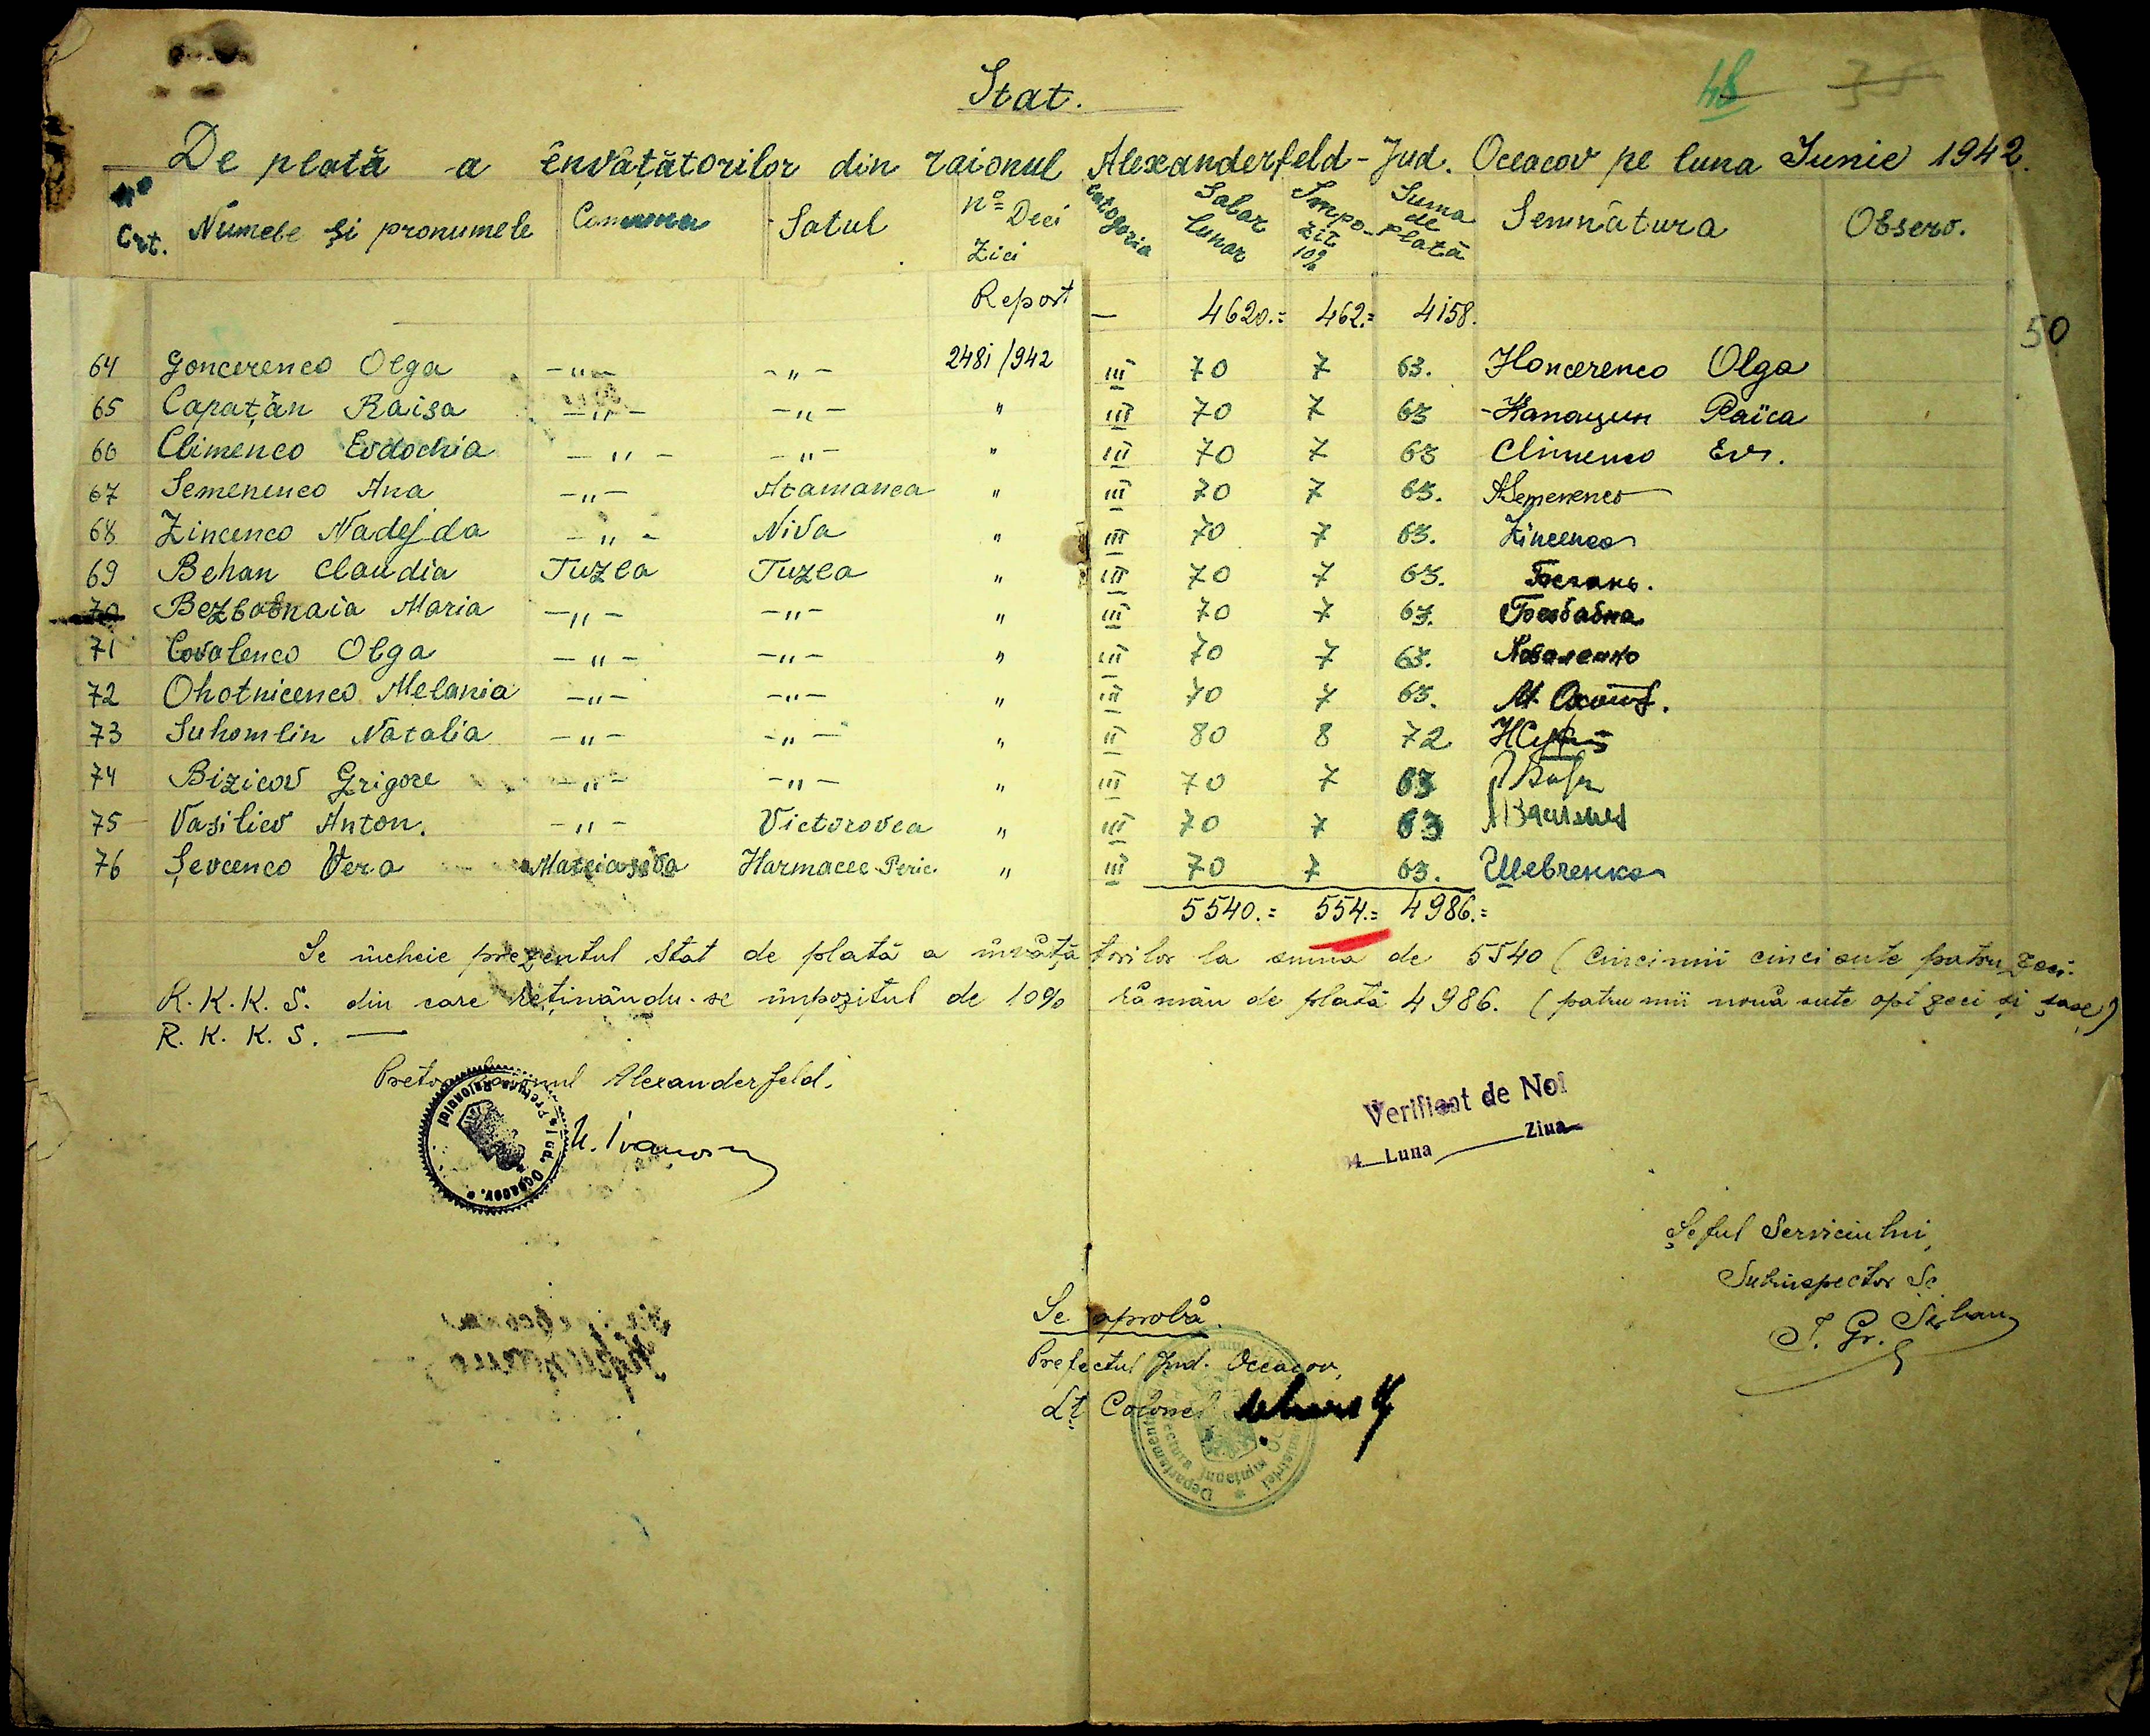 48 35
Stat.
De plată a învățătorilor din raionul Alexanderfeld - Jud. Oceacov pe luna Iunie 1942.
No Crt. Numele și pronumele Comuna Satul No Deci Zici Categoria Salar Lunar Impozit 10% Suma de plată Semnătura Observ.
Report — 4620.= 462.= 4158.
50
64 Goncerenco Olga -"- -"- 2481/942 III 70 7 63. Honcerenco Olga
65 Capațân Raisa -"- -"- " III 70 7 63 Капацин Раїса
66 Climenco Evdochia -"- -"- " III 70 7 63 Climenco Ev.
67 Semenenco Ana -"- Atamanca " III 70 7 63. ASemenenco
68 Zincenco Nadejda -"- Niva " III 70 7 63. Zincenco
69 Behan Claudia Tuzla Tuzla " III 70 7 63. Бегань.
70 Bezbabnaia Maria -"- -"- " III 70 7 63. Безбабна
71 Covalenco Olga -"- -"- " III 70 7 63. Коваленко
72 Ohotnicenco Melania -"- -"- " III 70 7 63. М.
73 Suhomlin Natalia -"- -"- " II 80 8 72
74 Bizicov Grigore -"- -"- " III 70 7 63
75 Vasiliev Anton. -"- Victorovca " III 70 7 63
76 Șevcenco Vera Harmacec Peric. " III 70 7 63. Шевченко
5540.= 554.= 4986.=
Se încheie prezentul stat de plată a învățătorilor la suma de 5540 (cincimii cinci sute patru zeci.
R.K.K.S. din care reținându-se impozitul de 10% rămân de plată 4986. (patru mii nouă sute opt zeci și șase)
R.K.K.S. —
Pretor raionul Alexanderfeld.
Pretura Raionului Jud. Oceacov.
Verificat de Noi
194 Luna Ziua
Șeful Serviciului,
Subinspector Sc.
I. Gr. Șerban
Se aprobă
Prefectul Jud. Oceacov,
Lt Colonel